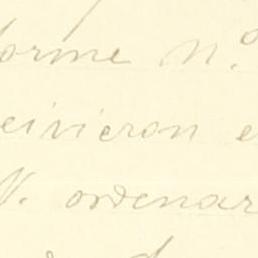 orme N.º
eivieron e
V. ordenar